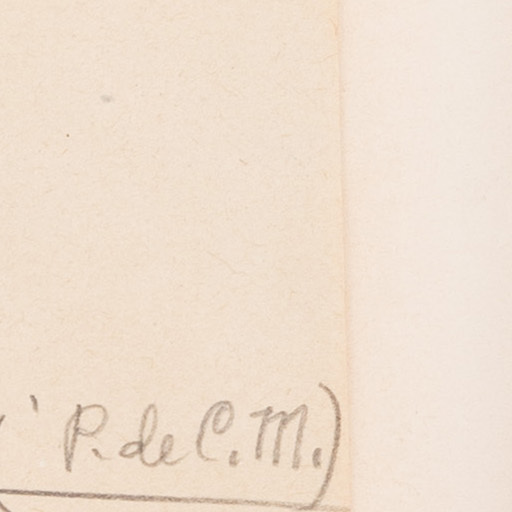 P. de C. M.)